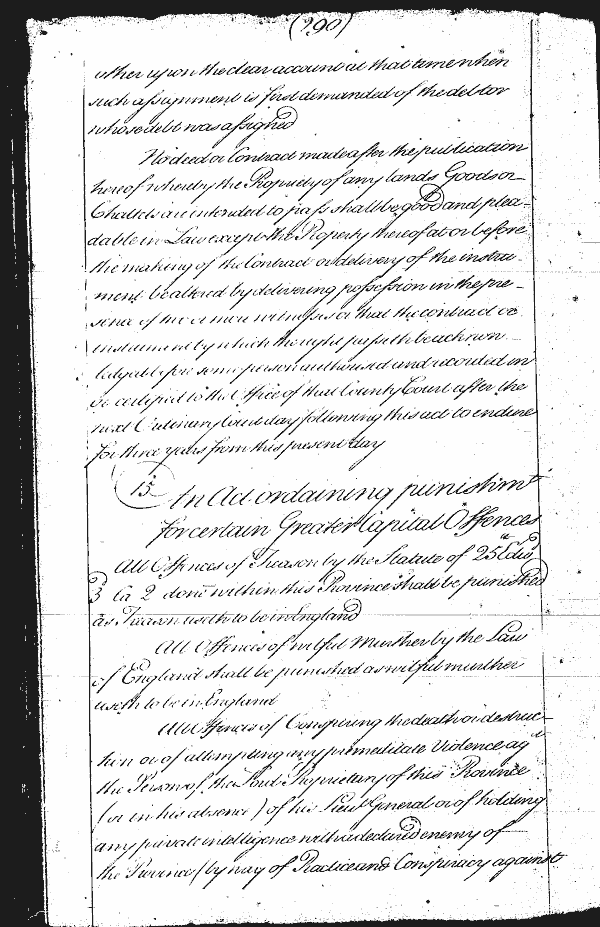 (290)
other upon the clear account at that time when
such assignment is first demanded of the debtor
whose debt was assigned
No deed or Contract made after the publication
hereof whereby the Propriety of any lands Goods or
Chattels are intended to pass shall be good and plea-
dable in Law except the Property thereof at or before
the making of the Contract or delivery of the instru-
ment be altered by delivering possession in the pre-
sence of two or more witnesses or that the contract or
instrument by which the right passeth be acknow-
ledged before some person authorised and recorded in
or certified to the Office of that County Court after the
next Ordinary Court day following this act to endure
for three years from this present day
15 An Act ordaining punishmt
for certain Greater Capital Offences
All Offences of Treason by the Statute of 25th Edw
3 Ca 2 done within this Province shall be punished
as Treason useth to be in England
All Offences of wilful Murther by the Law
of England shall be punished as wilful murther
useth to be in England
All Offences of Conspiring the death or destruc-
tion or of attempting any premeditate Violence agt
the Person of the Lord Proprietary of this Province
(or in his absence) of his Lieut General or of holding
any private intelligence with a declared enemy of
the Province (by way of Practice and Conspiracy against